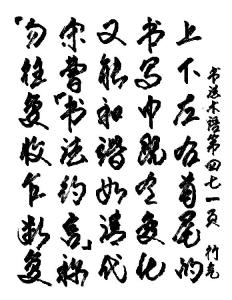 上下左右首尾的
书写中既变化
又能和谐如清代
宋曹「书法约言」称
「勿往复收乍断复
书法术语第四七一页